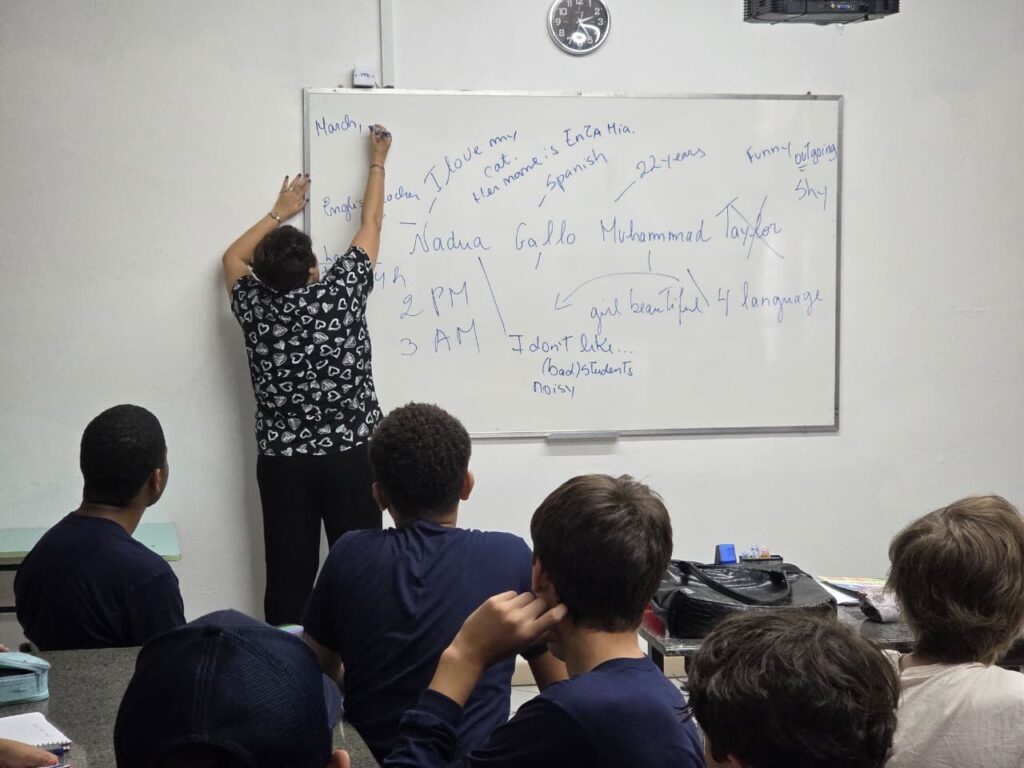 March,
I love my
cat.
Her name is EnzA Mia.
Spanish
22 years
Funny outgoing
Shy
Nadua Gallo Muhammad Taylor
4h
2 PM
3 AM
girl beautiful 4 language
I don't like...
(bad) students
noisy